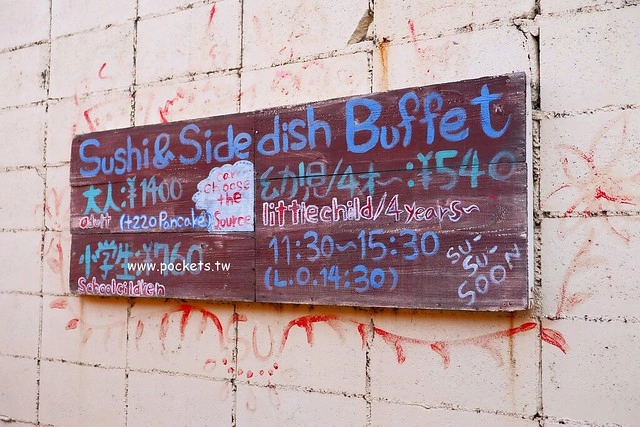 Sushi & Side dish Buffet
大人:¥1400
adult (+220 Pancake)
can choose
the
Source
幼児/4才~:¥540
little child/4 years~
小学生:¥760
Schoolcildren
11:30~15:30
(L.O.14:30)
SU-
SU-
SOON
www.pockets.tw